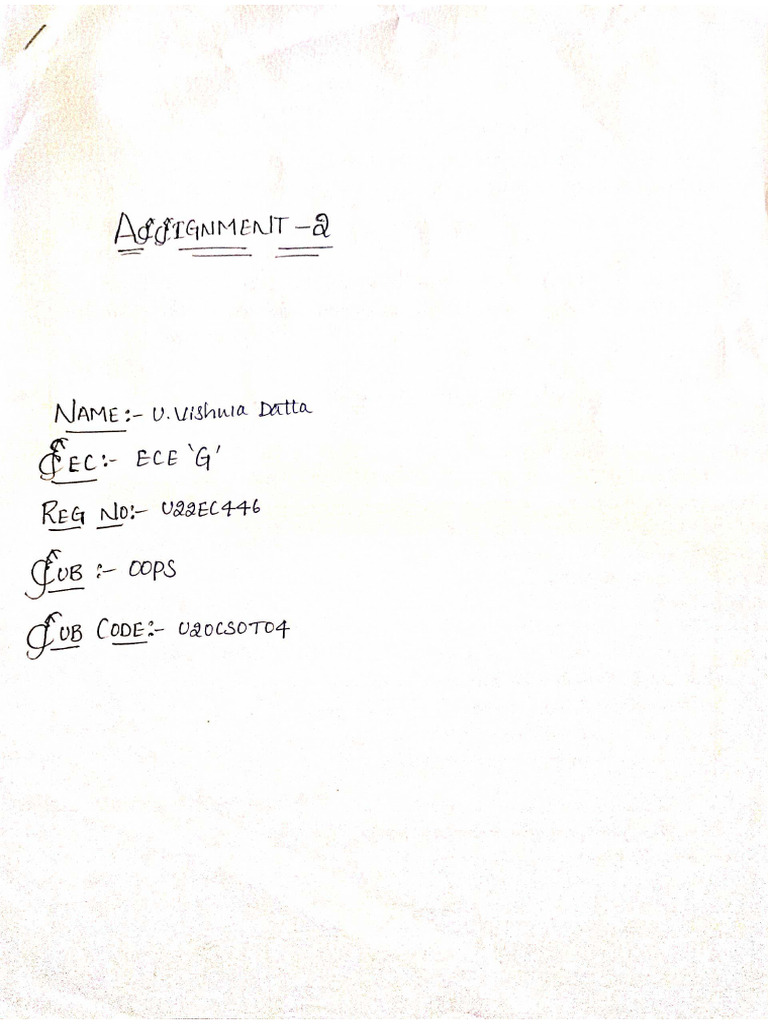 ASSIGNMENT - 2
NAME:- U. Vishwa Datta
SEC:- ECE 'G'
REG NO:- U22EC446
SUB :- OOPS
SUB CODE:- U20CSOT04